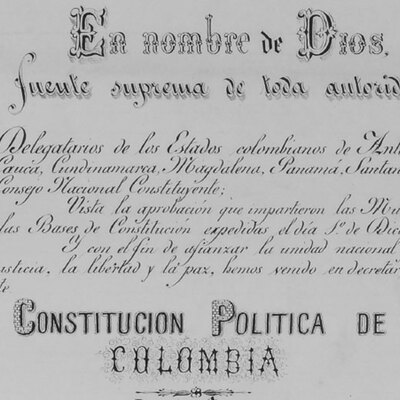 En nombre de Dios,
fuente suprema de toda autorid
Delegatarios de los Estados colombianos de Ant
Cauca, Cundinamarca, Magdalena, Panamá, Santan
Consejo Nacional Constituyente;
Vista la aprobación que impartieron las Mu
las Bases de Constitución expedidas el día 1º de Dici
Y con el fin de afianzar la unidad nacional
usticia, la libertad y la paz, hemos venido en decretar
te
CONSTITUCION POLITICA DE
COLOMBIA